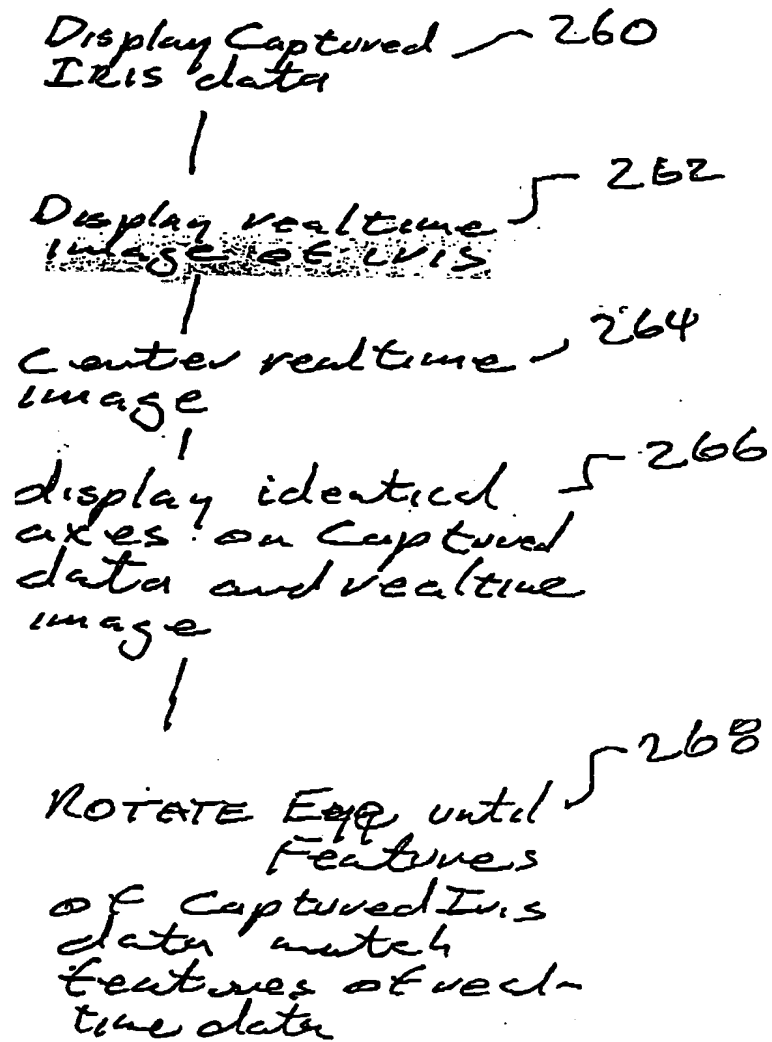 Display Captured 260
IRIS data
Display realtime 262
image of iris
Center realtime 264
image
display identical 266
axes on Captured
data and realtime
image
268
ROTATE Eye until
Features
of Captured Iris
data match
features of real-
time data